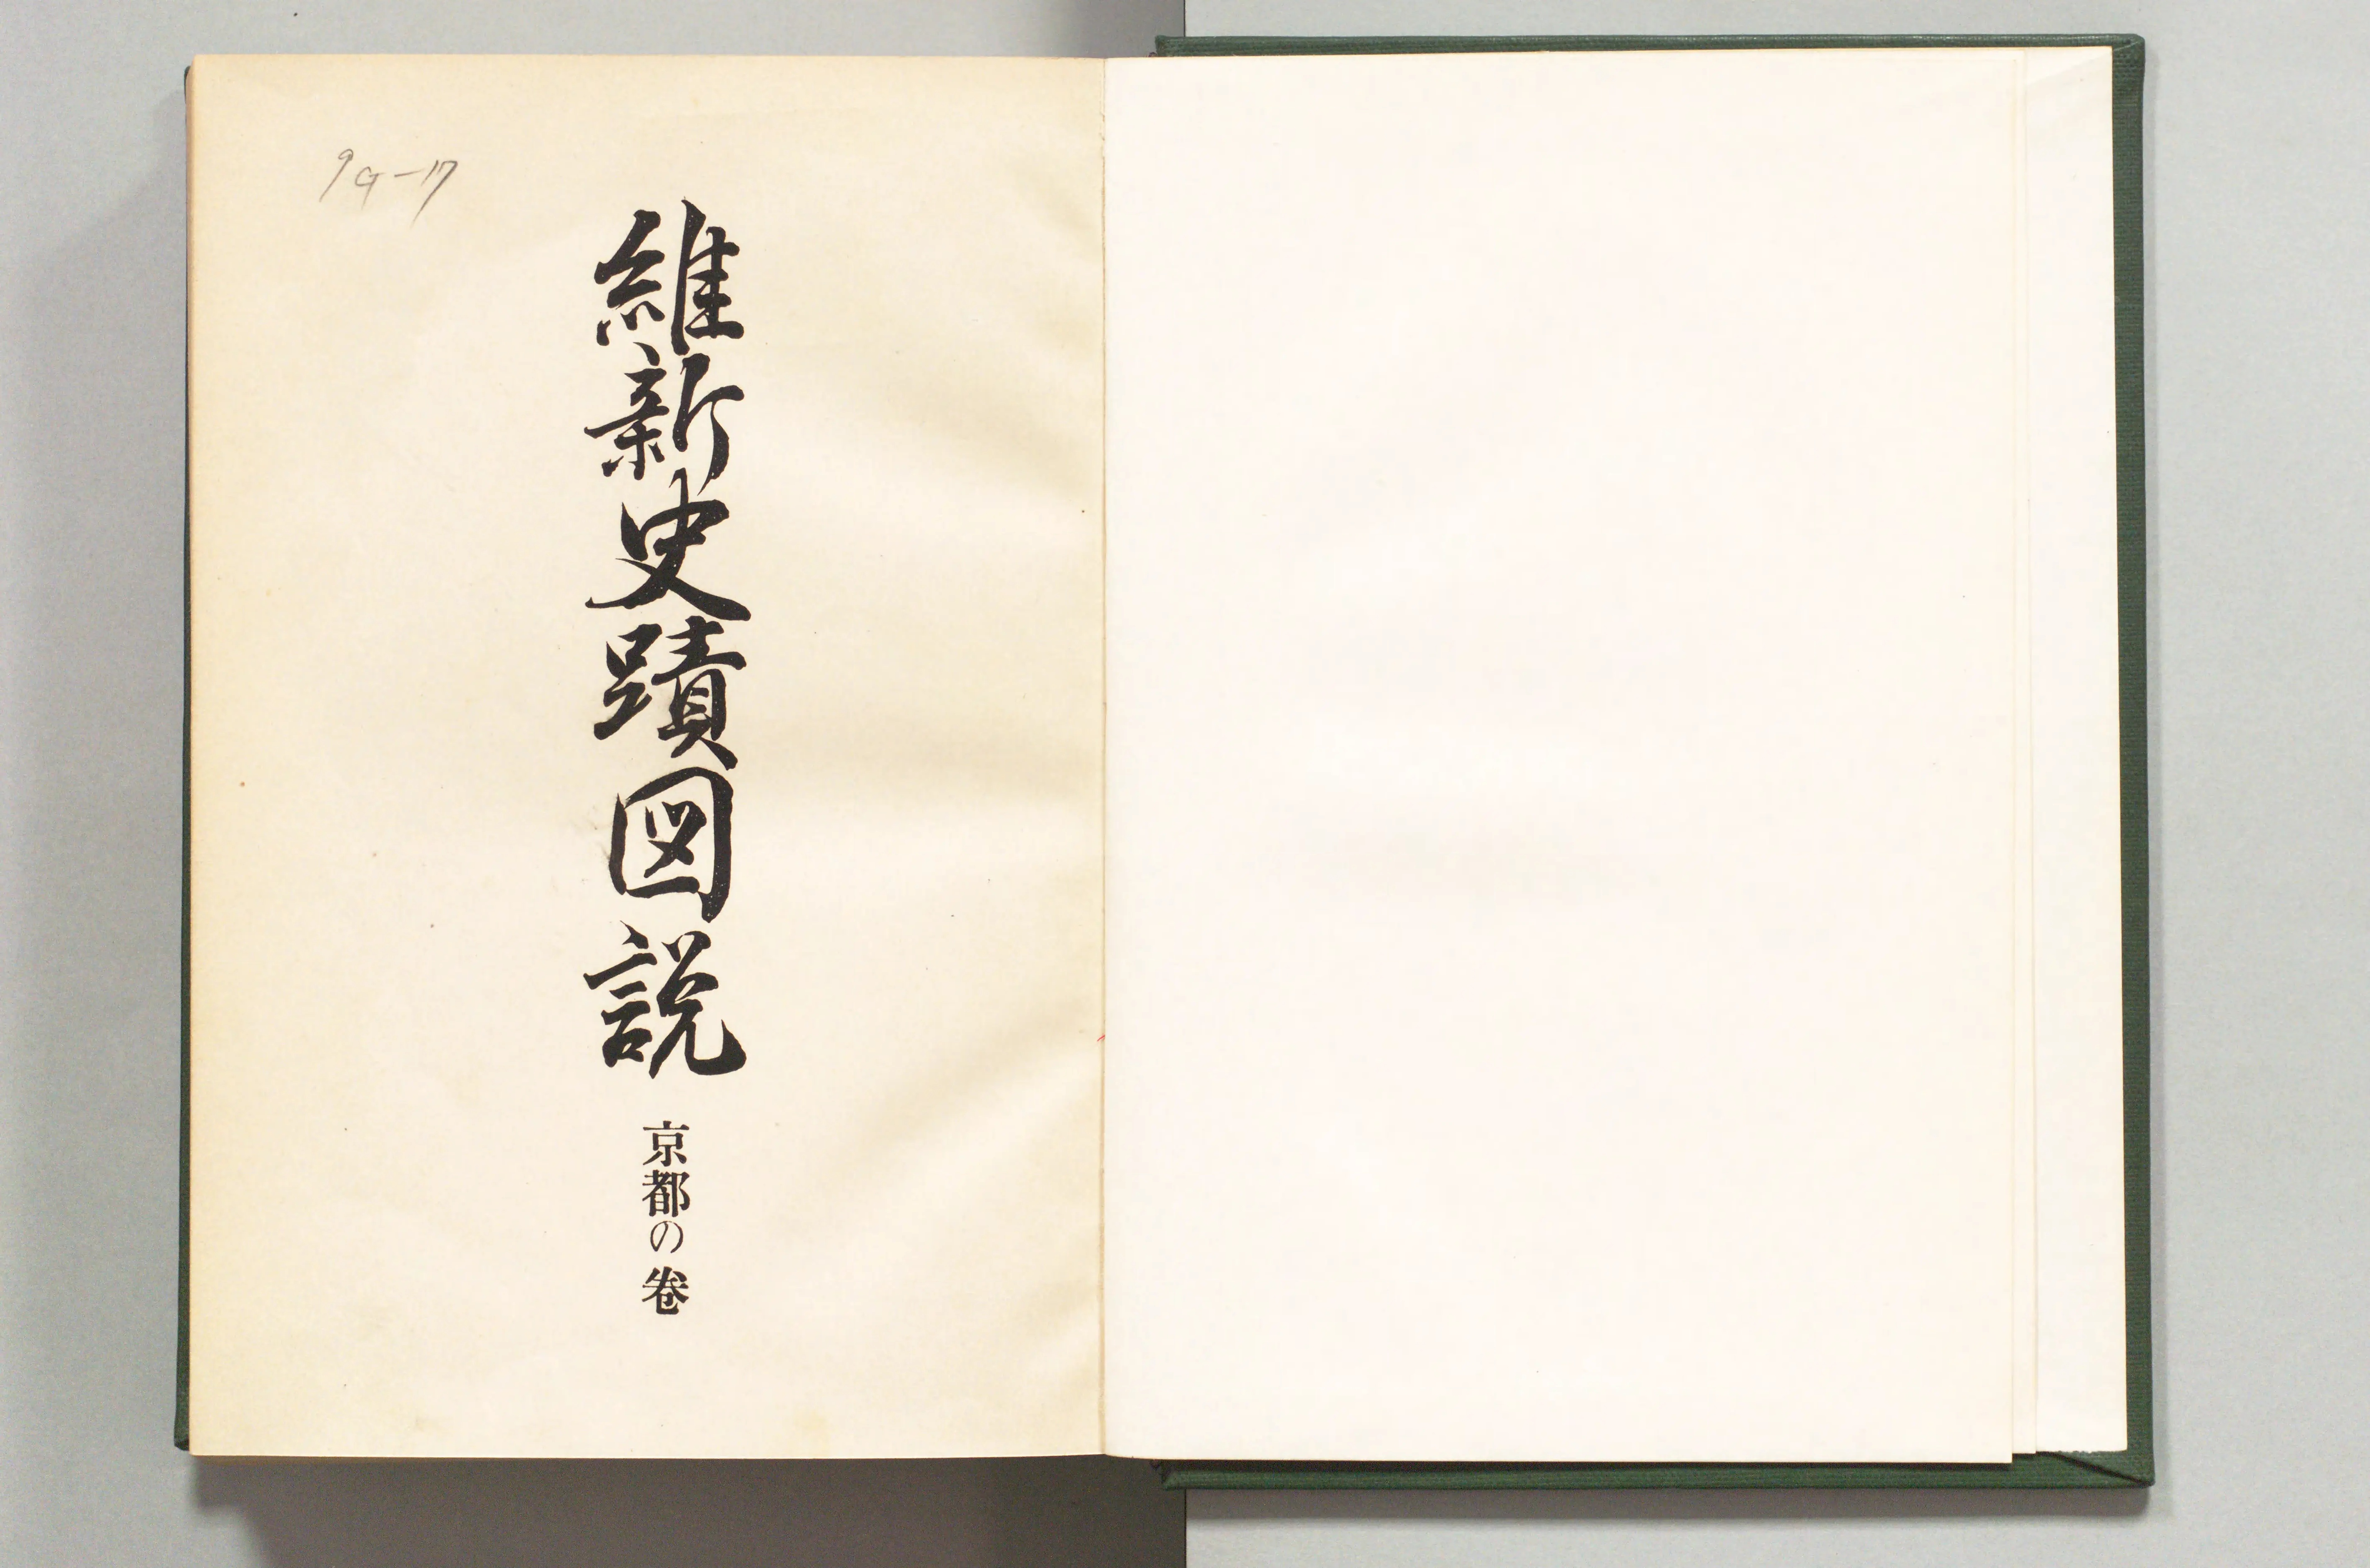 9G-17
維新史蹟図説
京都の巻